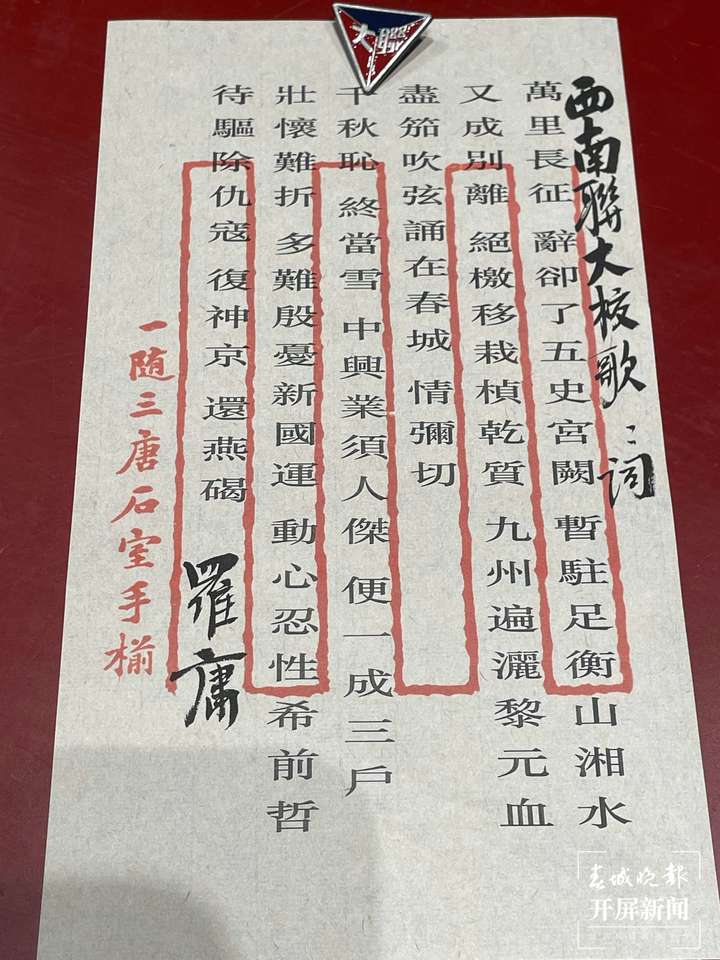 大聯
西南聯大校歌:词
萬里長征 辭卻了五史宮闕 暫駐足衡山湘水
又成別離 絕檄移栽楨乾質 九州遍灑黎元血
盡笳吹弦誦在春城 情彌切
千秋恥 終當雪 中興業須人傑 便一成三戶
壯懷難折 多難殷憂新國運 動心忍性希前哲
待驅除仇寇 復神京 還燕碣
羅庸
一随三唐石室手
春城晚报
开屏新闻